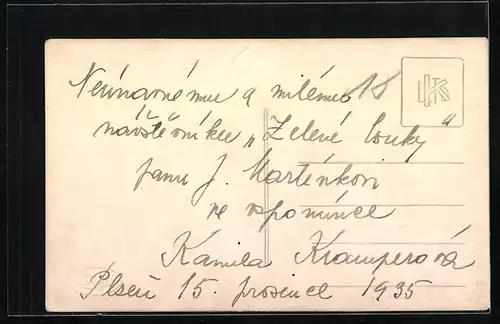 Neúnavnému a milému
návštěvníku „Zelené louky
panu J. Marténkovi
ve vzpomínce
Kamila Kramperová
Plzeň 15. prosince 1935